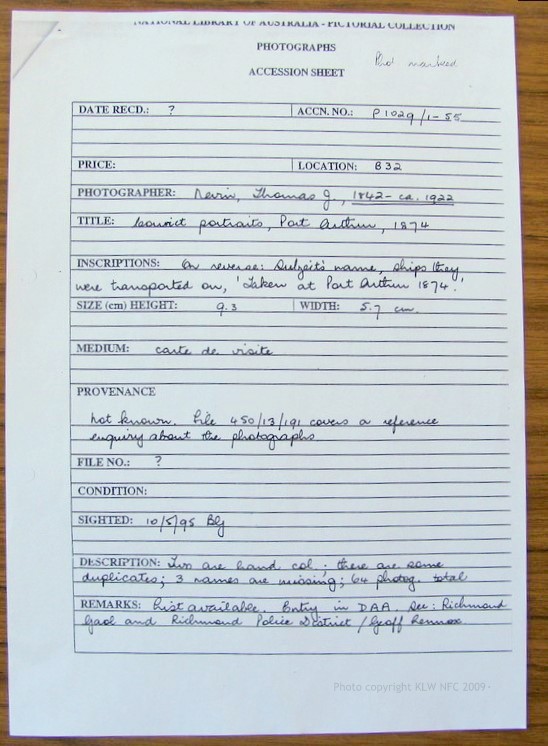 NATIONAL LIBRARY OF AUSTRALIA - PICTORIAL COLLECTION
PHOTOGRAPHS
Phot marked
ACCESSION SHEET
DATE RECD.: ? ACCN. NO.: P1029/1-55
PRICE: LOCATION: B32
PHOTOGRAPHER: Nevin, Thomas J., 1842-ca. 1922
TITLE: Convict portraits, Port Arthur, 1874
INSCRIPTIONS: On reverse: Subject's name, ships they
were transported on, 'Taken at Port Arthur 1874.'
SIZE (cm) HEIGHT: 9.3 WIDTH: 5.7 cm.
MEDIUM: carte de visite
PROVENANCE
Not known. File 450/13/191 covers a reference
enquiry about the photographs
FILE NO.: ?
CONDITION:
SIGHTED: 10/5/95
DESCRIPTION: Two are hand col.; there are some
duplicates; 3 names are missing; 64 photog. total
REMARKS: List available. Entry in DAA. See: Richmond
Gaol and Richmond Police District / Geoff Lennox
Photo copyright KLW NFC 2009-